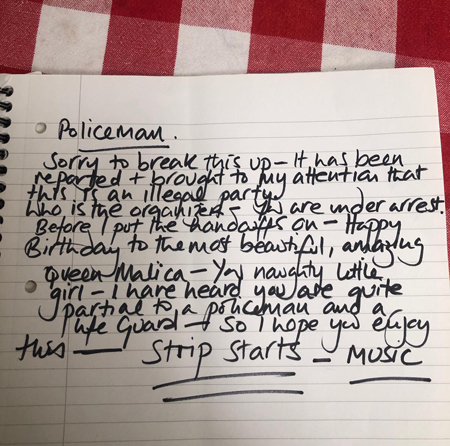 Policeman.
Sorry to break this up - It has been
reported + brought to my attention that
this is an illegal party.
Who is the organizer - You are under arrest.
Before I put the handcuffs on - Happy
Birthday to the most beautiful, amazing
queen Malica - You naughty little
girl - I have heard you are quite
partial to a policeman and a
life Guard - So I hope you enjoy
this — Strip Starts - MUSIC